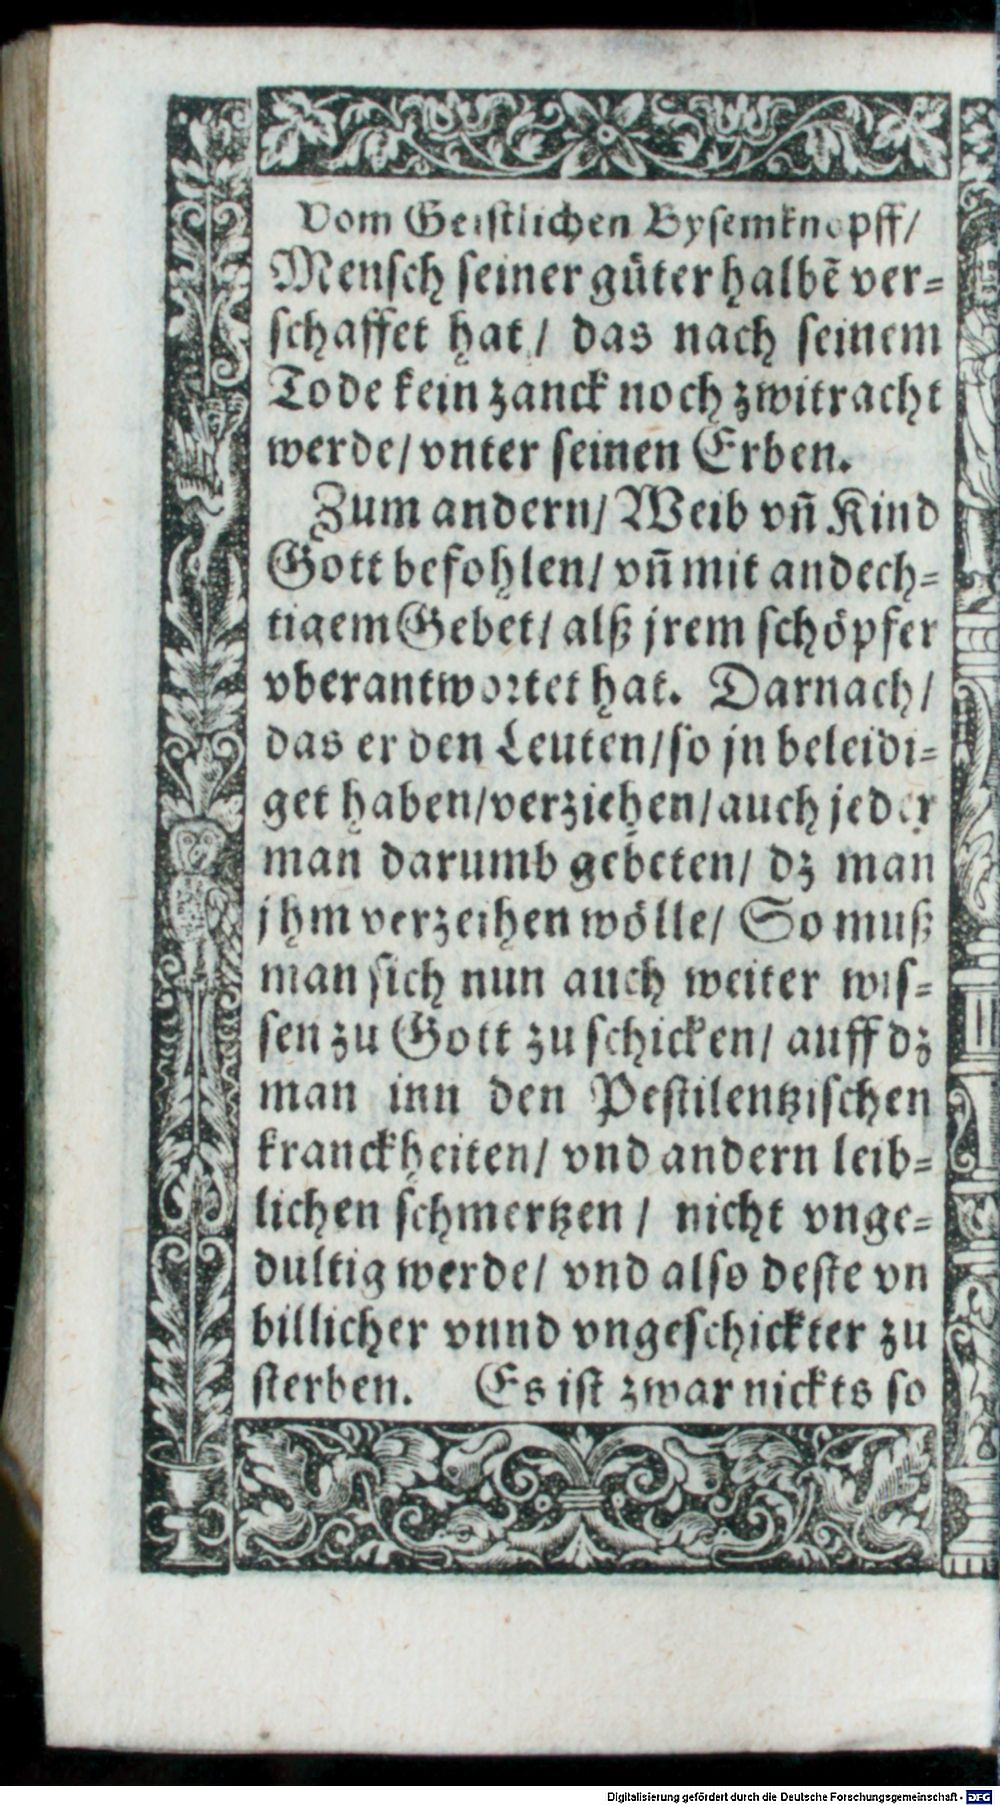 Vom Geistlichen Bysemknopff/
Mensch seiner güter halbẽ ver-
schaffet hat/ das nach seinem
Tode kein zanck noch zwitracht
werde/ vnter seinen Erben.
Zum andern/ Weib vñ Kind
Gott befohlen/ vñ mit andech-
tigem Gebet/ alß jrem schöpfer
vberantwortet hat. Darnach/
das er den Leuten/ so jn beleidi-
get haben/ verziehen/ auch jeder
man darumb gebeten/ dz man
jhm verzeihen wölle/ So muß
man sich nun auch weiter wis-
sen zu Gott zu schicken/ auff dz
man inn den Pestilentzischen
kranckheiten/ vnd andern leib-
lichen schmertzen/ nicht vnge-
dultig werde/ vnd also deste vn
billicher vnnd vngeschickter zu
sterben. Es ist zwar nickts so
Digitalisierung gefördert durch die Deutsche Forschungsgemeinschaft - DFG